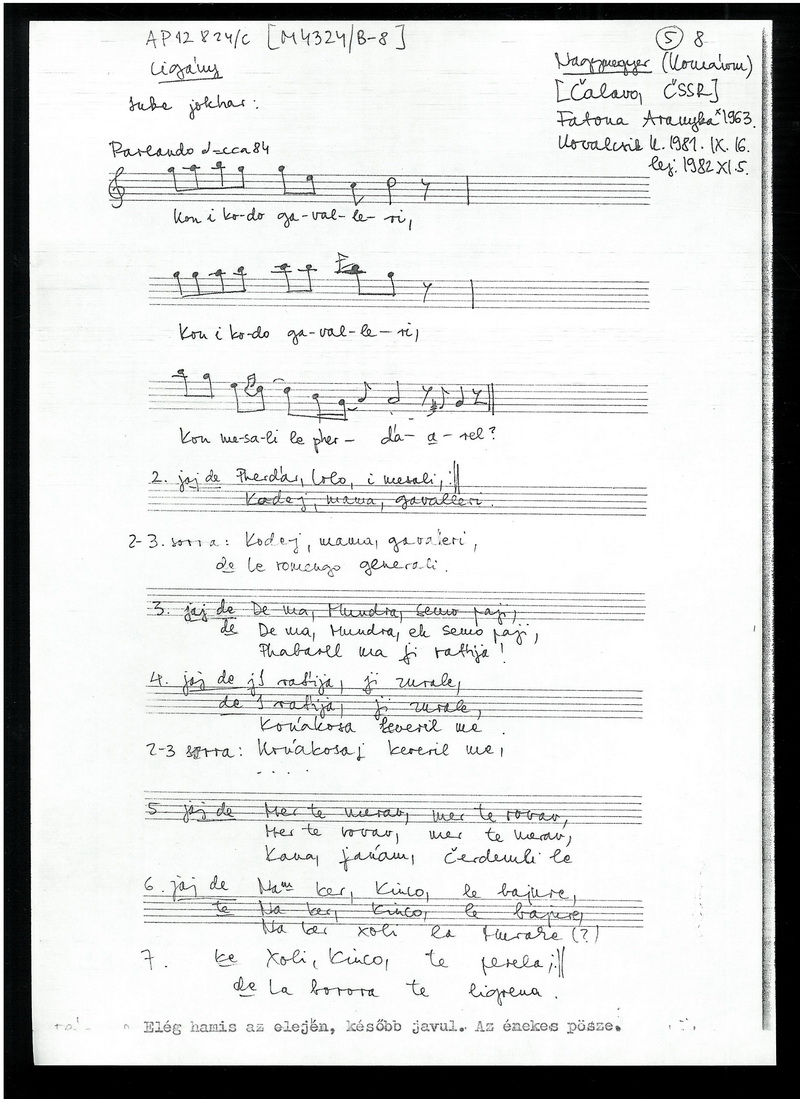 AP12824/c [M4324/B-8]
⑤ 8
Cigány
Nagymegyer (Komárom)
[Čalavo, ČSSR]
suke jokhar:
Fatona Aranyka × 1963.
Kovalcsik K. 1981. IX. 16.
lej. 1982 XI. 5.
Parlando ♩=cca 84
Kon i ko-do ga-val-le-ri,
Kon i ko-do ga-val-le-ri,
Kon me-sa-li le pher- dá- a-rel?
2. jaj de Pherdár, lolo, i mesali, :||
Kodej, mama, gavalleri.
2-3. sorra: Kodej, mama, gavaleri,
de le romengo generali.
3. jaj de De ma, Mundra, semo paji,
de De ma, Mundra, ek semo paji,
Phabarell ma ji rattija!
4. jaj de ji rattija, ji zurale,
de i rattija, ji zurale,
Koňakosa keveril me.
2-3 sorra: Koňakosaj kereril me,
. . . .
5 jaj de Mer te merav, mer te rovav,
Mer te rovav, mer te merav,
Kana, janam, čerdemli le
6. jaj de Na ker, Kinco, le bajure,
te Na ker, Kinco, le bajure,
Na ker xoli la Murake (?)
7. ke Xoli, Kinco, te perela, :||
de La borora te ligrena.
Elég hamis az elején, később javul. Az énekes pösze.